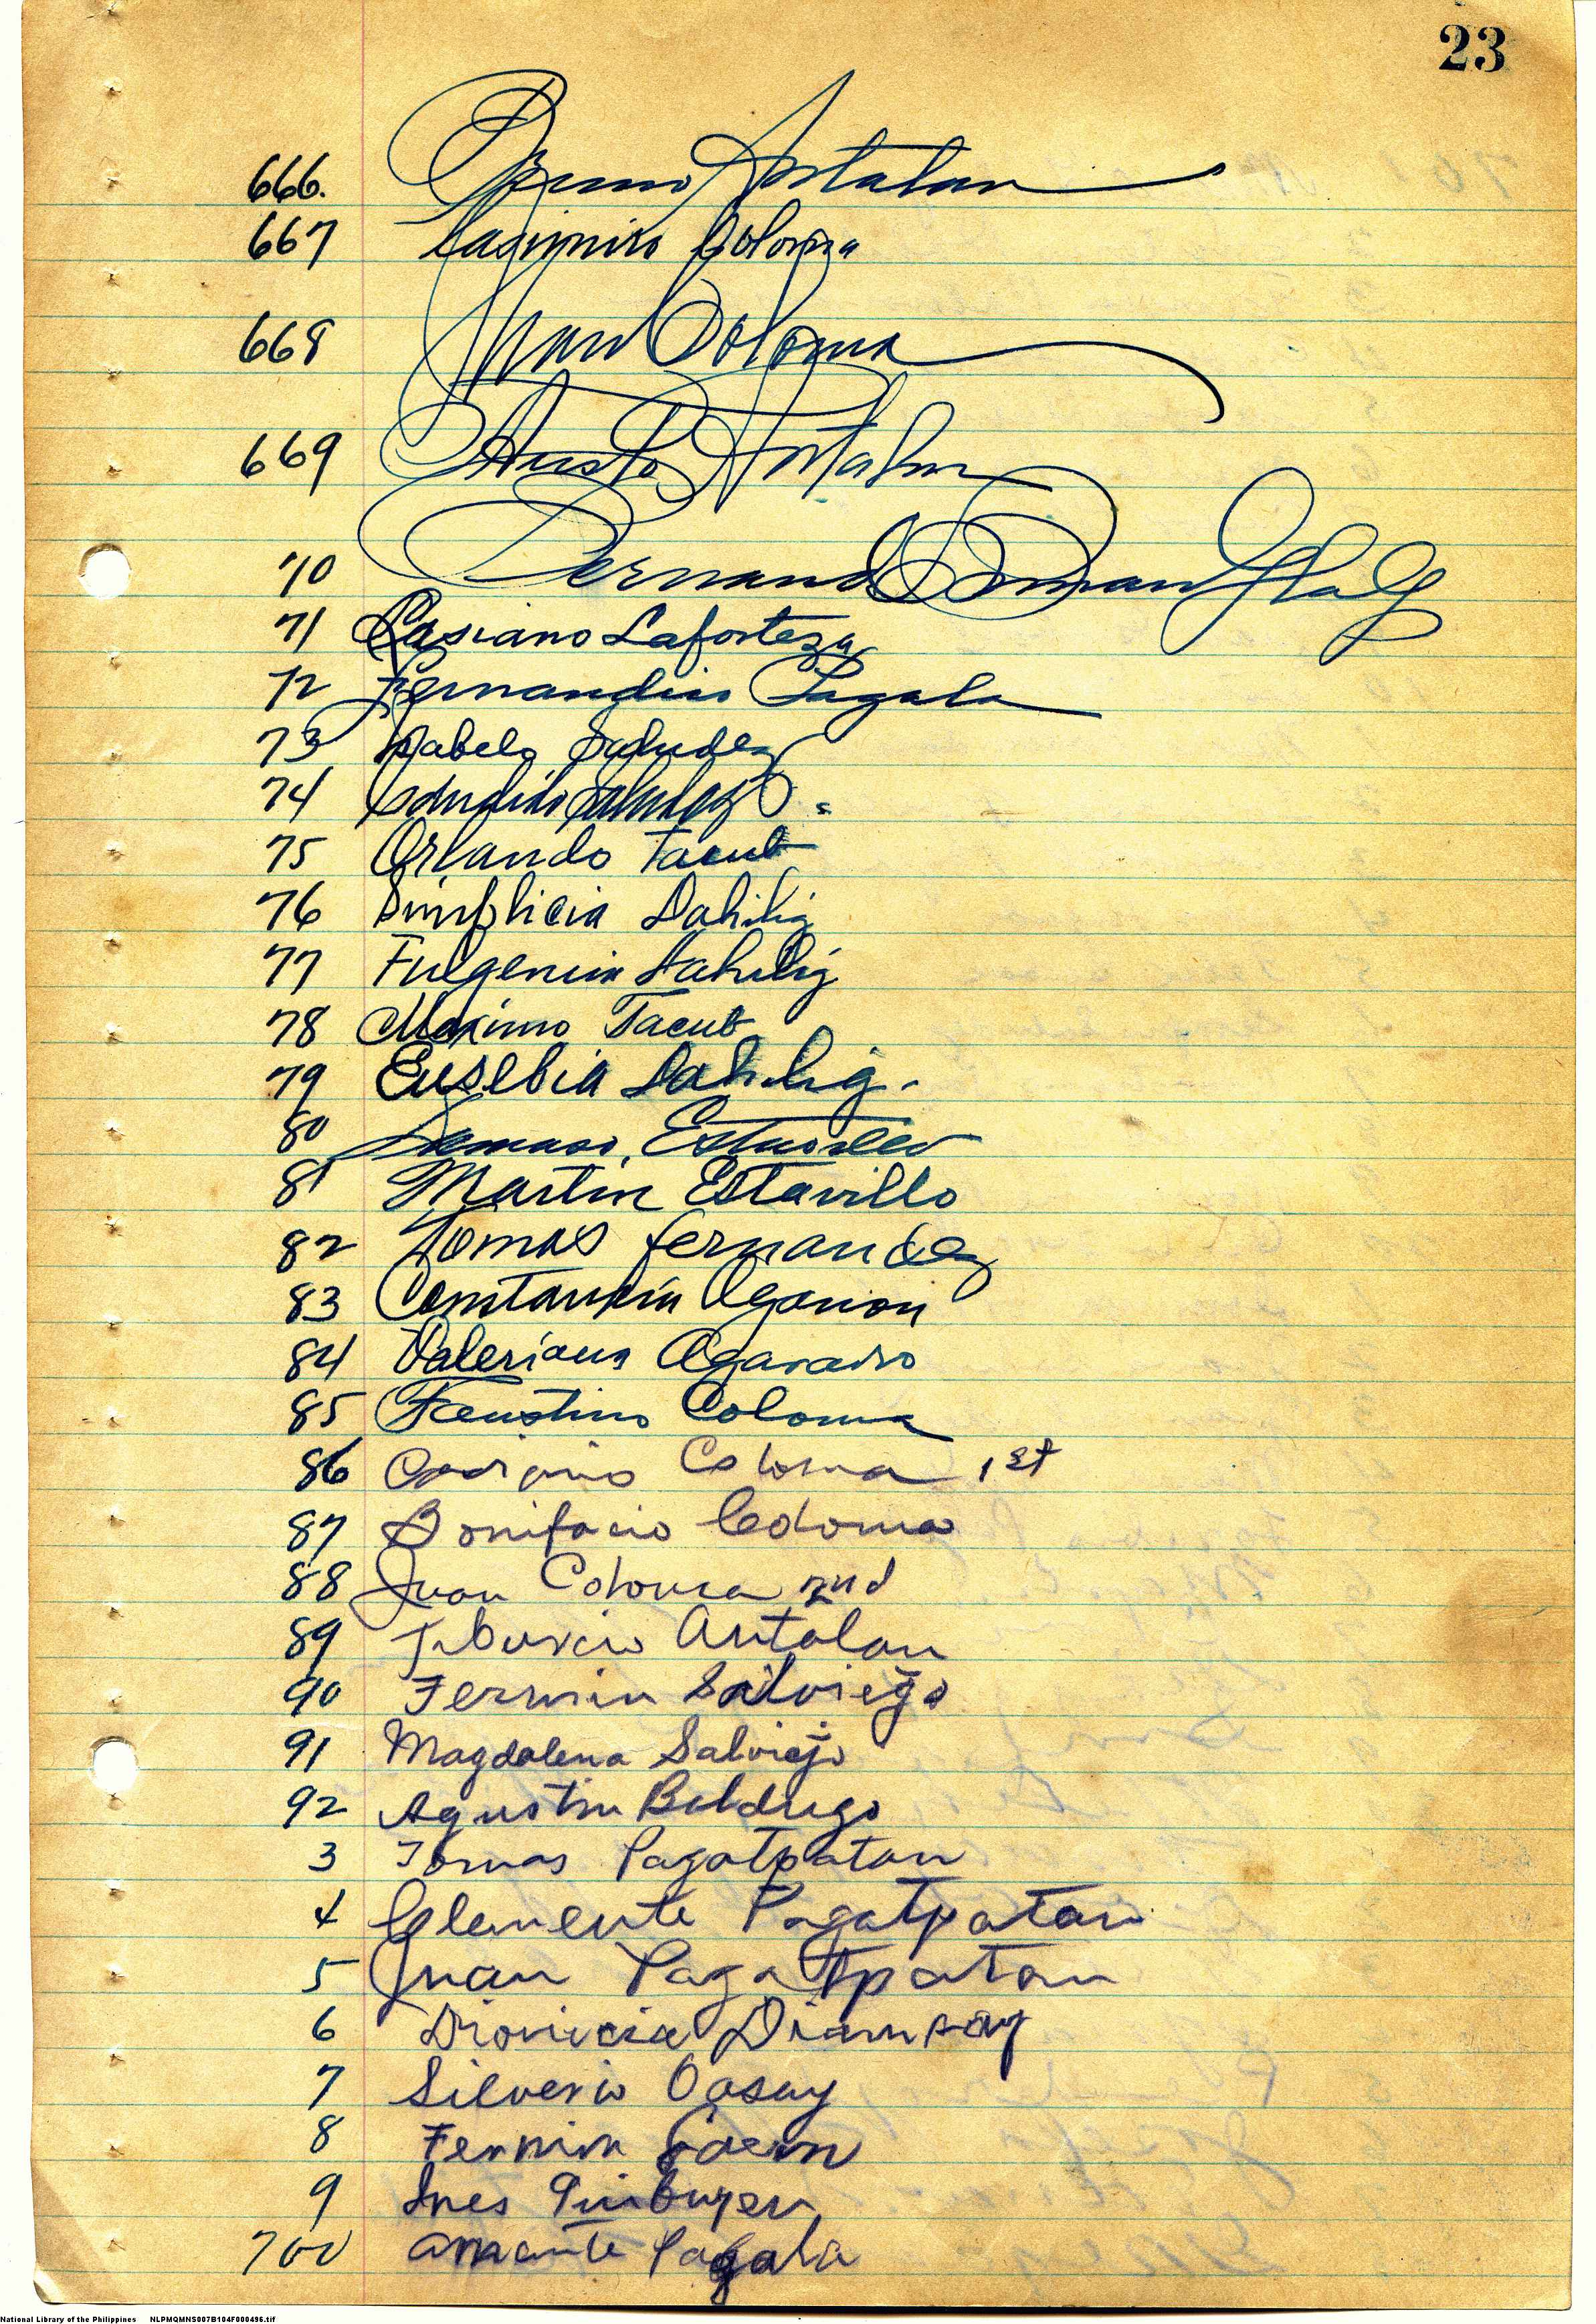 23
666. Bruno Antalan
667 Casimiro Coloma
668 Juan Coloma
669 Antalan
70 Fernand
71 Casiano Laforteza
72 Fernandino Pagala
73 Isabelo Saludez
74 Saludez
75 Orlando Tacub
76 Simplicia Dahilig
77 Fulgencia Dahilig
78 Maximo Tacub
79 Eusebia Dahilig.
80 Damaso
81 Martin Estavillo
82 Tomas Fernandez
83
84 Valeriana
85 Faustino Coloma
86 Coloma 1st
87 Bonifacio Coloma
88 Juan Coloma 2nd
89 Tiburcio Antalan
90 Fermin Salviejo
91 Magdalena Salviejo
92 Agustin Baldugo
3 Tomas Pagatpatan
4 Clemente Pagatpatan
5 Juan Pagatpatan
6 Dionicia Diampoy
7 Silverio Oasay
8 Fermin
9 Ines
700 Amante Pagala
National Library of the Philippines NLPMQMNS007B104F000496.tif